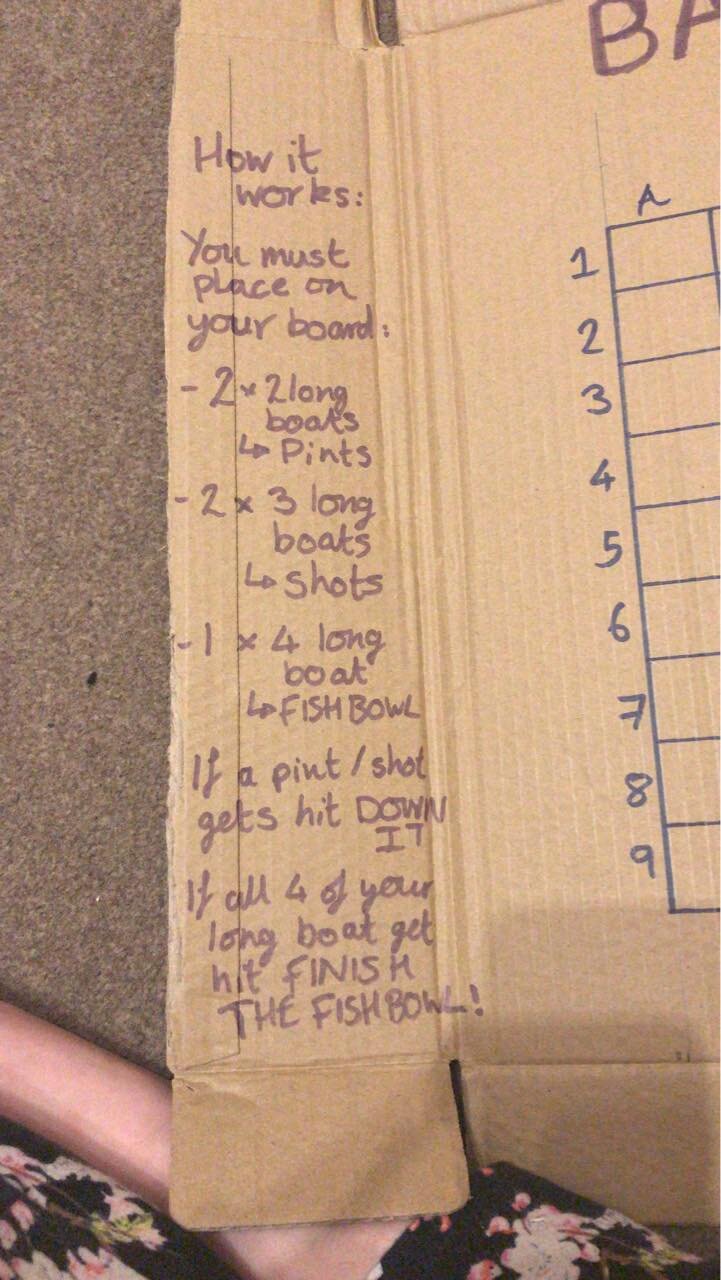 How it
works:
You must
place on
your board:
- 2 x 2 long
boats
↳ Pints
- 2 x 3 long
boats
↳ Shots
- 1 x 4 long
boat
↳ FISHBOWL
If a pint / shot
gets hit DOWN
IT
If all 4 of your
long boat get
hit FINISH
THE FISHBOWL!
BA
A
1
2
3
4
5
6
7
8
9